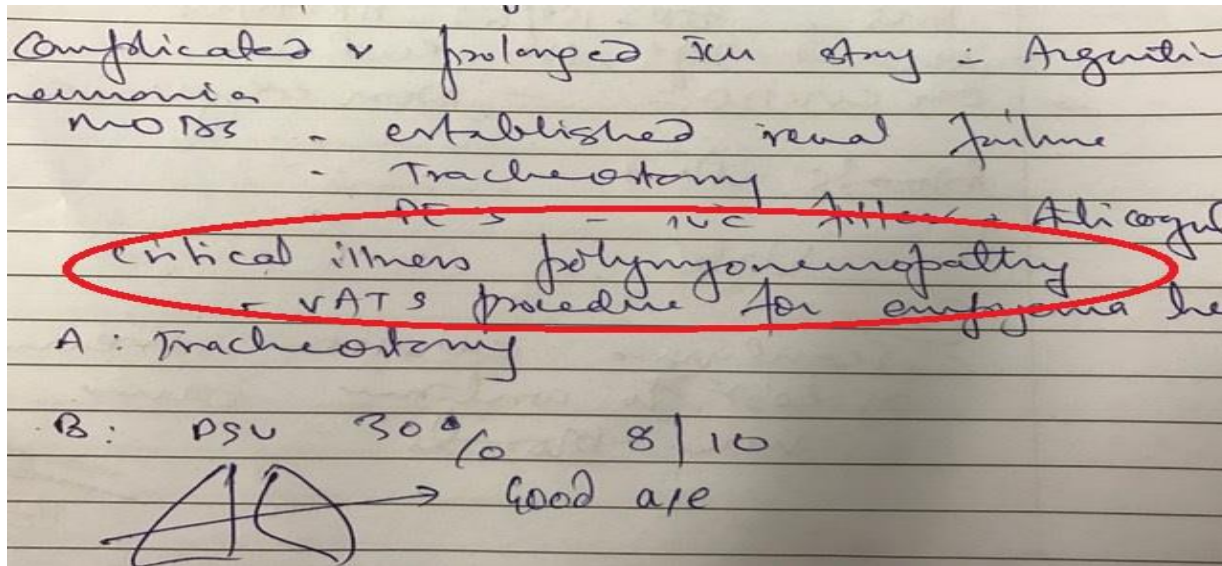 Complicated & prolonged ICU stay -
neumonia
MODS - established renal failure
- Tracheostomy
PE's - IVC filter
Critical illness polymyoneuropathy
- VATS procedure for empyema
A: Tracheostomy
B: PSV 30% 8/10
Good a/e